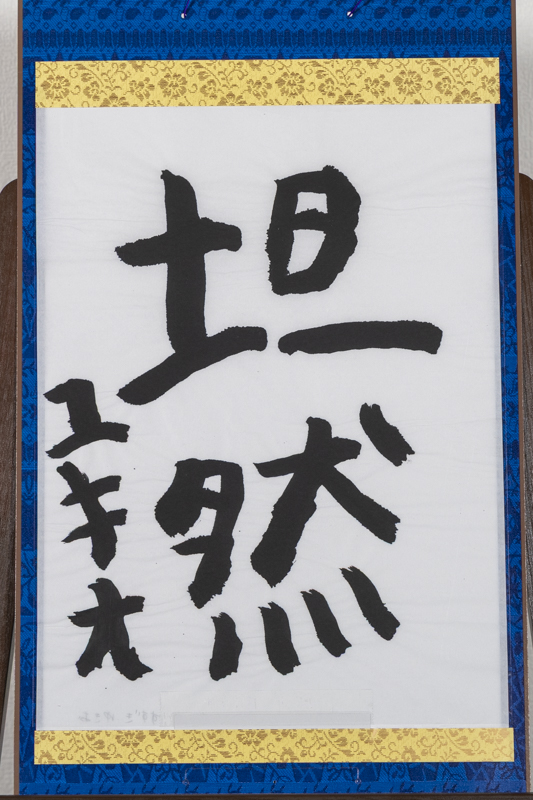 坦然
ユキオ